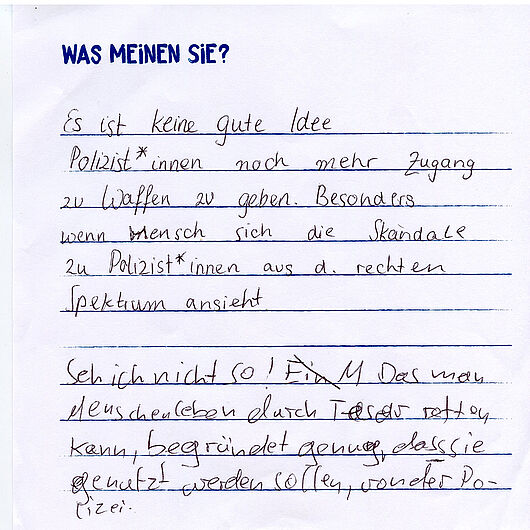 WAS MEINEN SIE?
Es ist keine gute Idee
Polizist*innen noch mehr Zugang
zu Waffen zu geben. Besonders
wenn mensch sich die Skandale
zu Polizist*innen aus d. rechten
Spektrum ansieht
Seh ich nicht so! Ein M Das man
Menschenleben durch Taser retten
kann, begründet genug, dass sie
genutzt werden sollen, von der Po-
lizei.